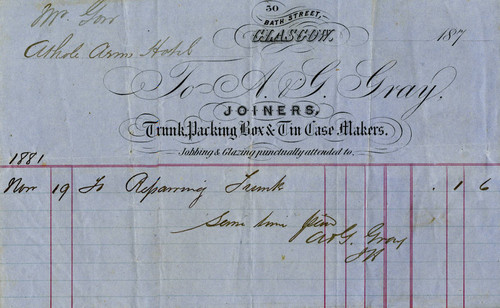 50
BATH STREET,
GLASGOW, 187
Mr. Gow
Athole Arms Hotel
To A. & G. Gray.
JOINERS,
Trunk, Packing Box & Tin Case Makers.
Jobbing & Glazing punctually attended to.
1881
Nov 19 To Repairing Trunk . 1 6
Same time
A & G. Gray